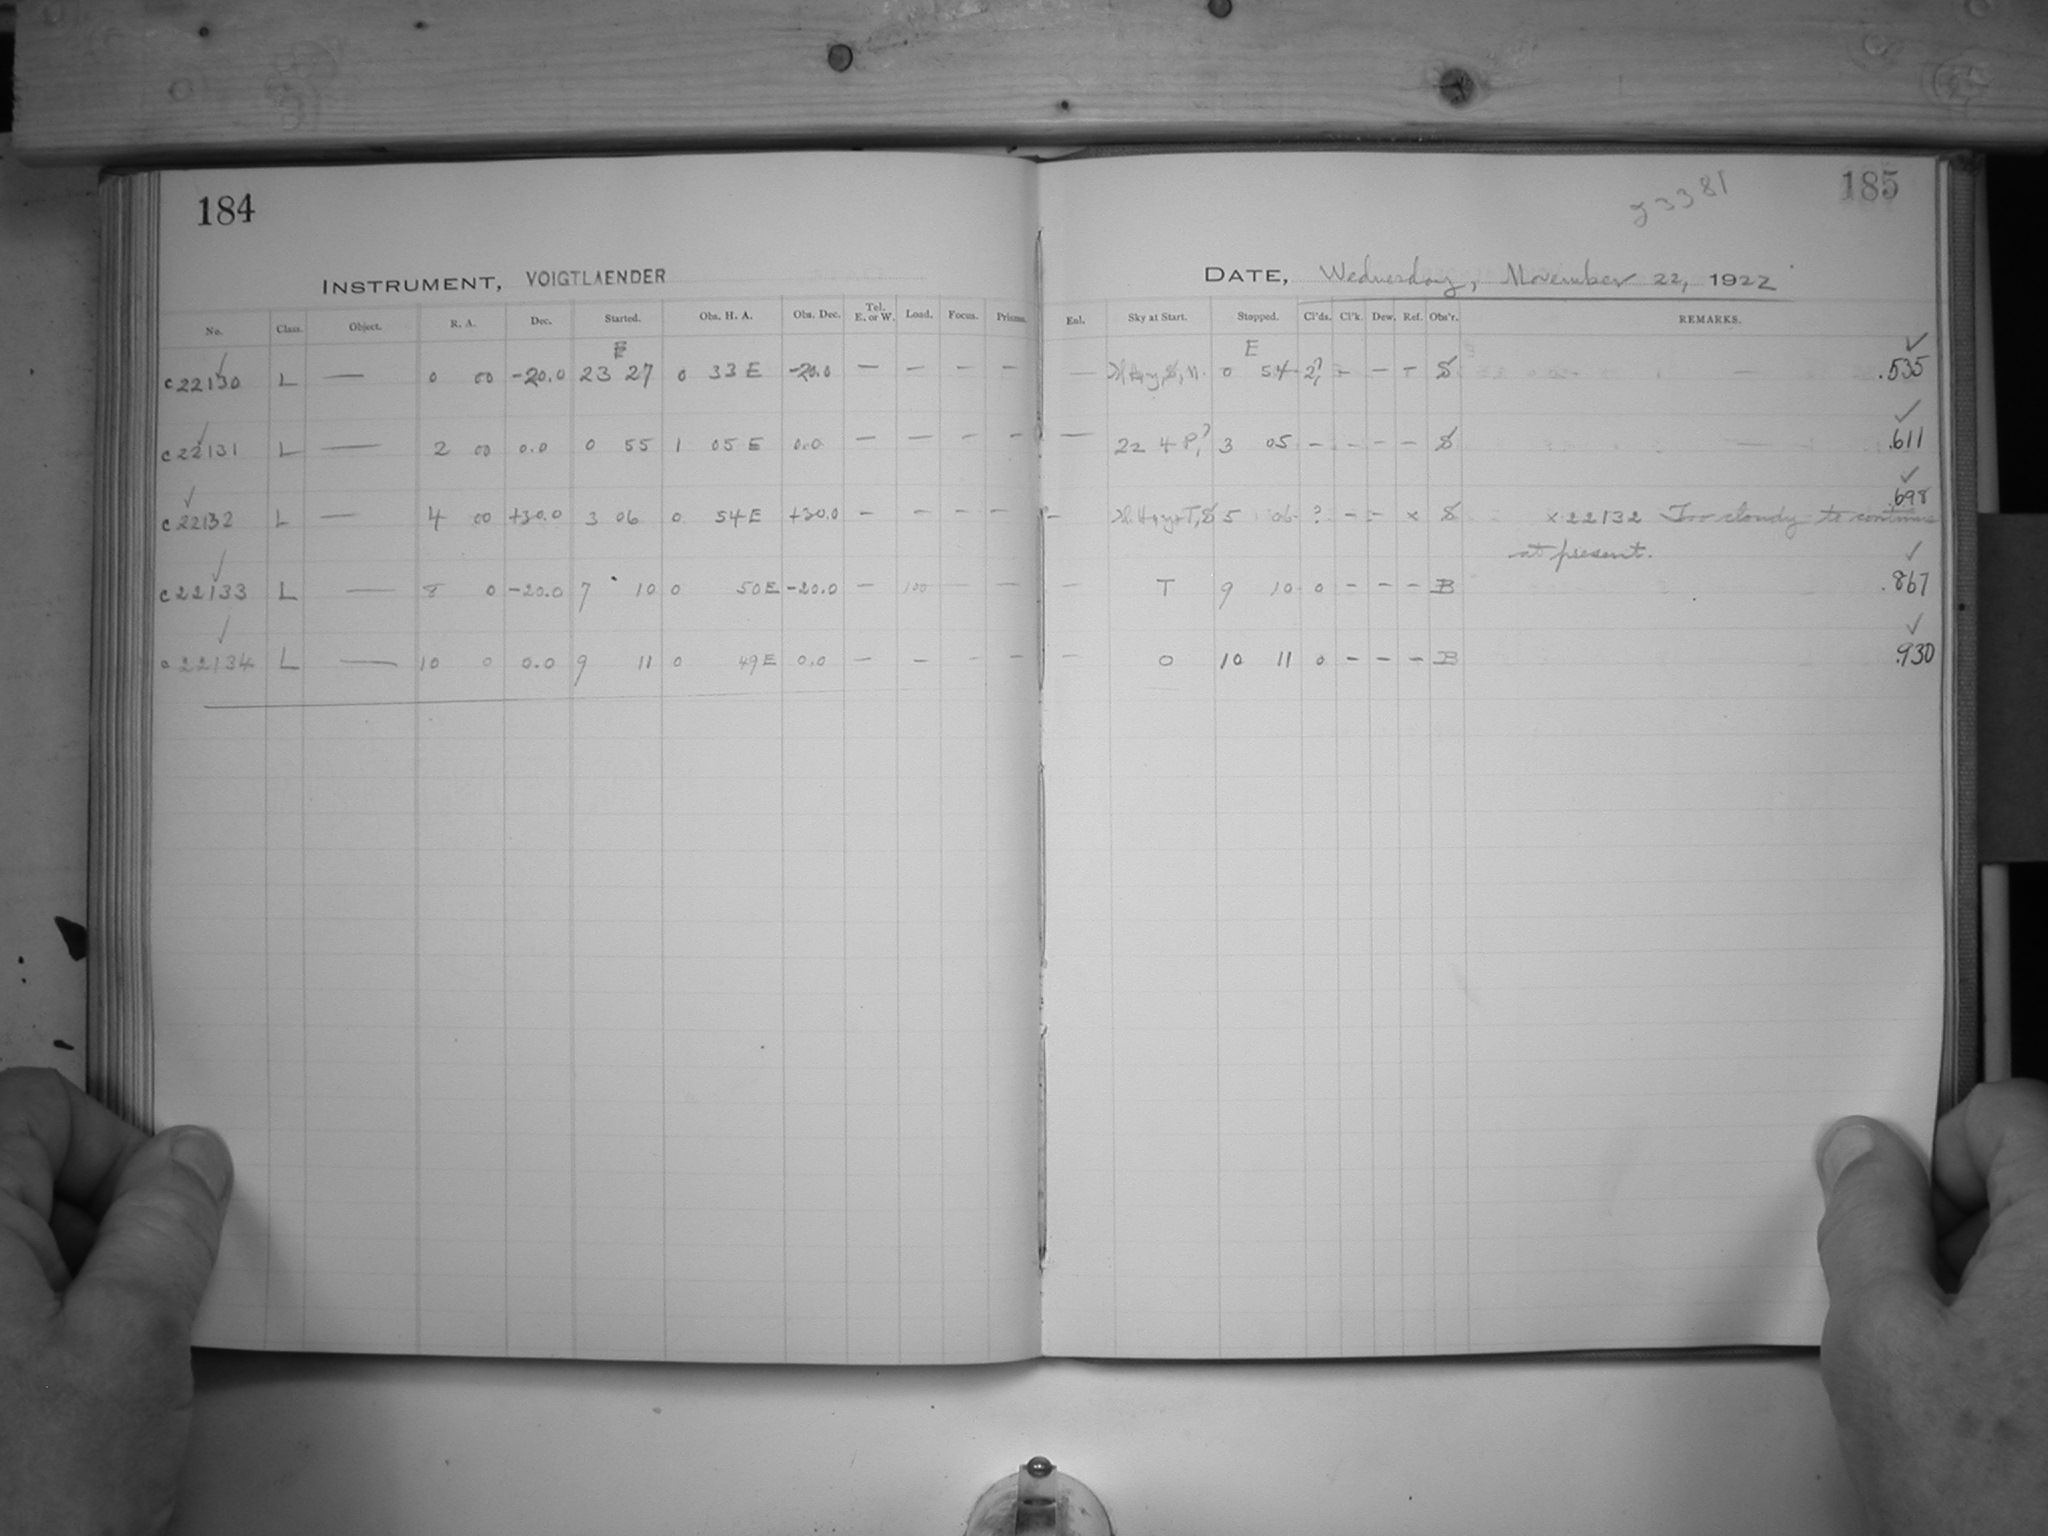 184
185
23381
INSTRUMENT, VOIGTLAENDER
DATE, Wednesday, November 22, 1922
No. Class. Object. R. A. Dec. Started. Obs. H. A. Obs. Dec. Tel. E. or W. Load. Focus. Prisms. Enl. Sky at Start. Stopped. Cl'ds. Cl'k. Dew. Ref. Obs'r. REMARKS.
E E
c22130 L — 0 00 -20.0 23 27 0 33 E -20.0 — — — — — 0 54 2? - — - S .535
c22131 L — 2 00 0.0 0 55 1 05 E 0.0 — — — — — 22 4 P,? 3 05 - - - - S .611
c22132 L — 4 00 +30.0 3 06 0 54 E +30.0 — — — — — 5 06 ? - - x S x22132 Too cloudy to continue .698
at present.
c22133 L — 8 0 -20.0 7 10 0 50 E -20.0 — 100 — — — T 9 10 0 - - - B .867
c22134 L — 10 0 0.0 9 11 0 49 E 0.0 — — - — — 0 10 11 0 - - - B .930